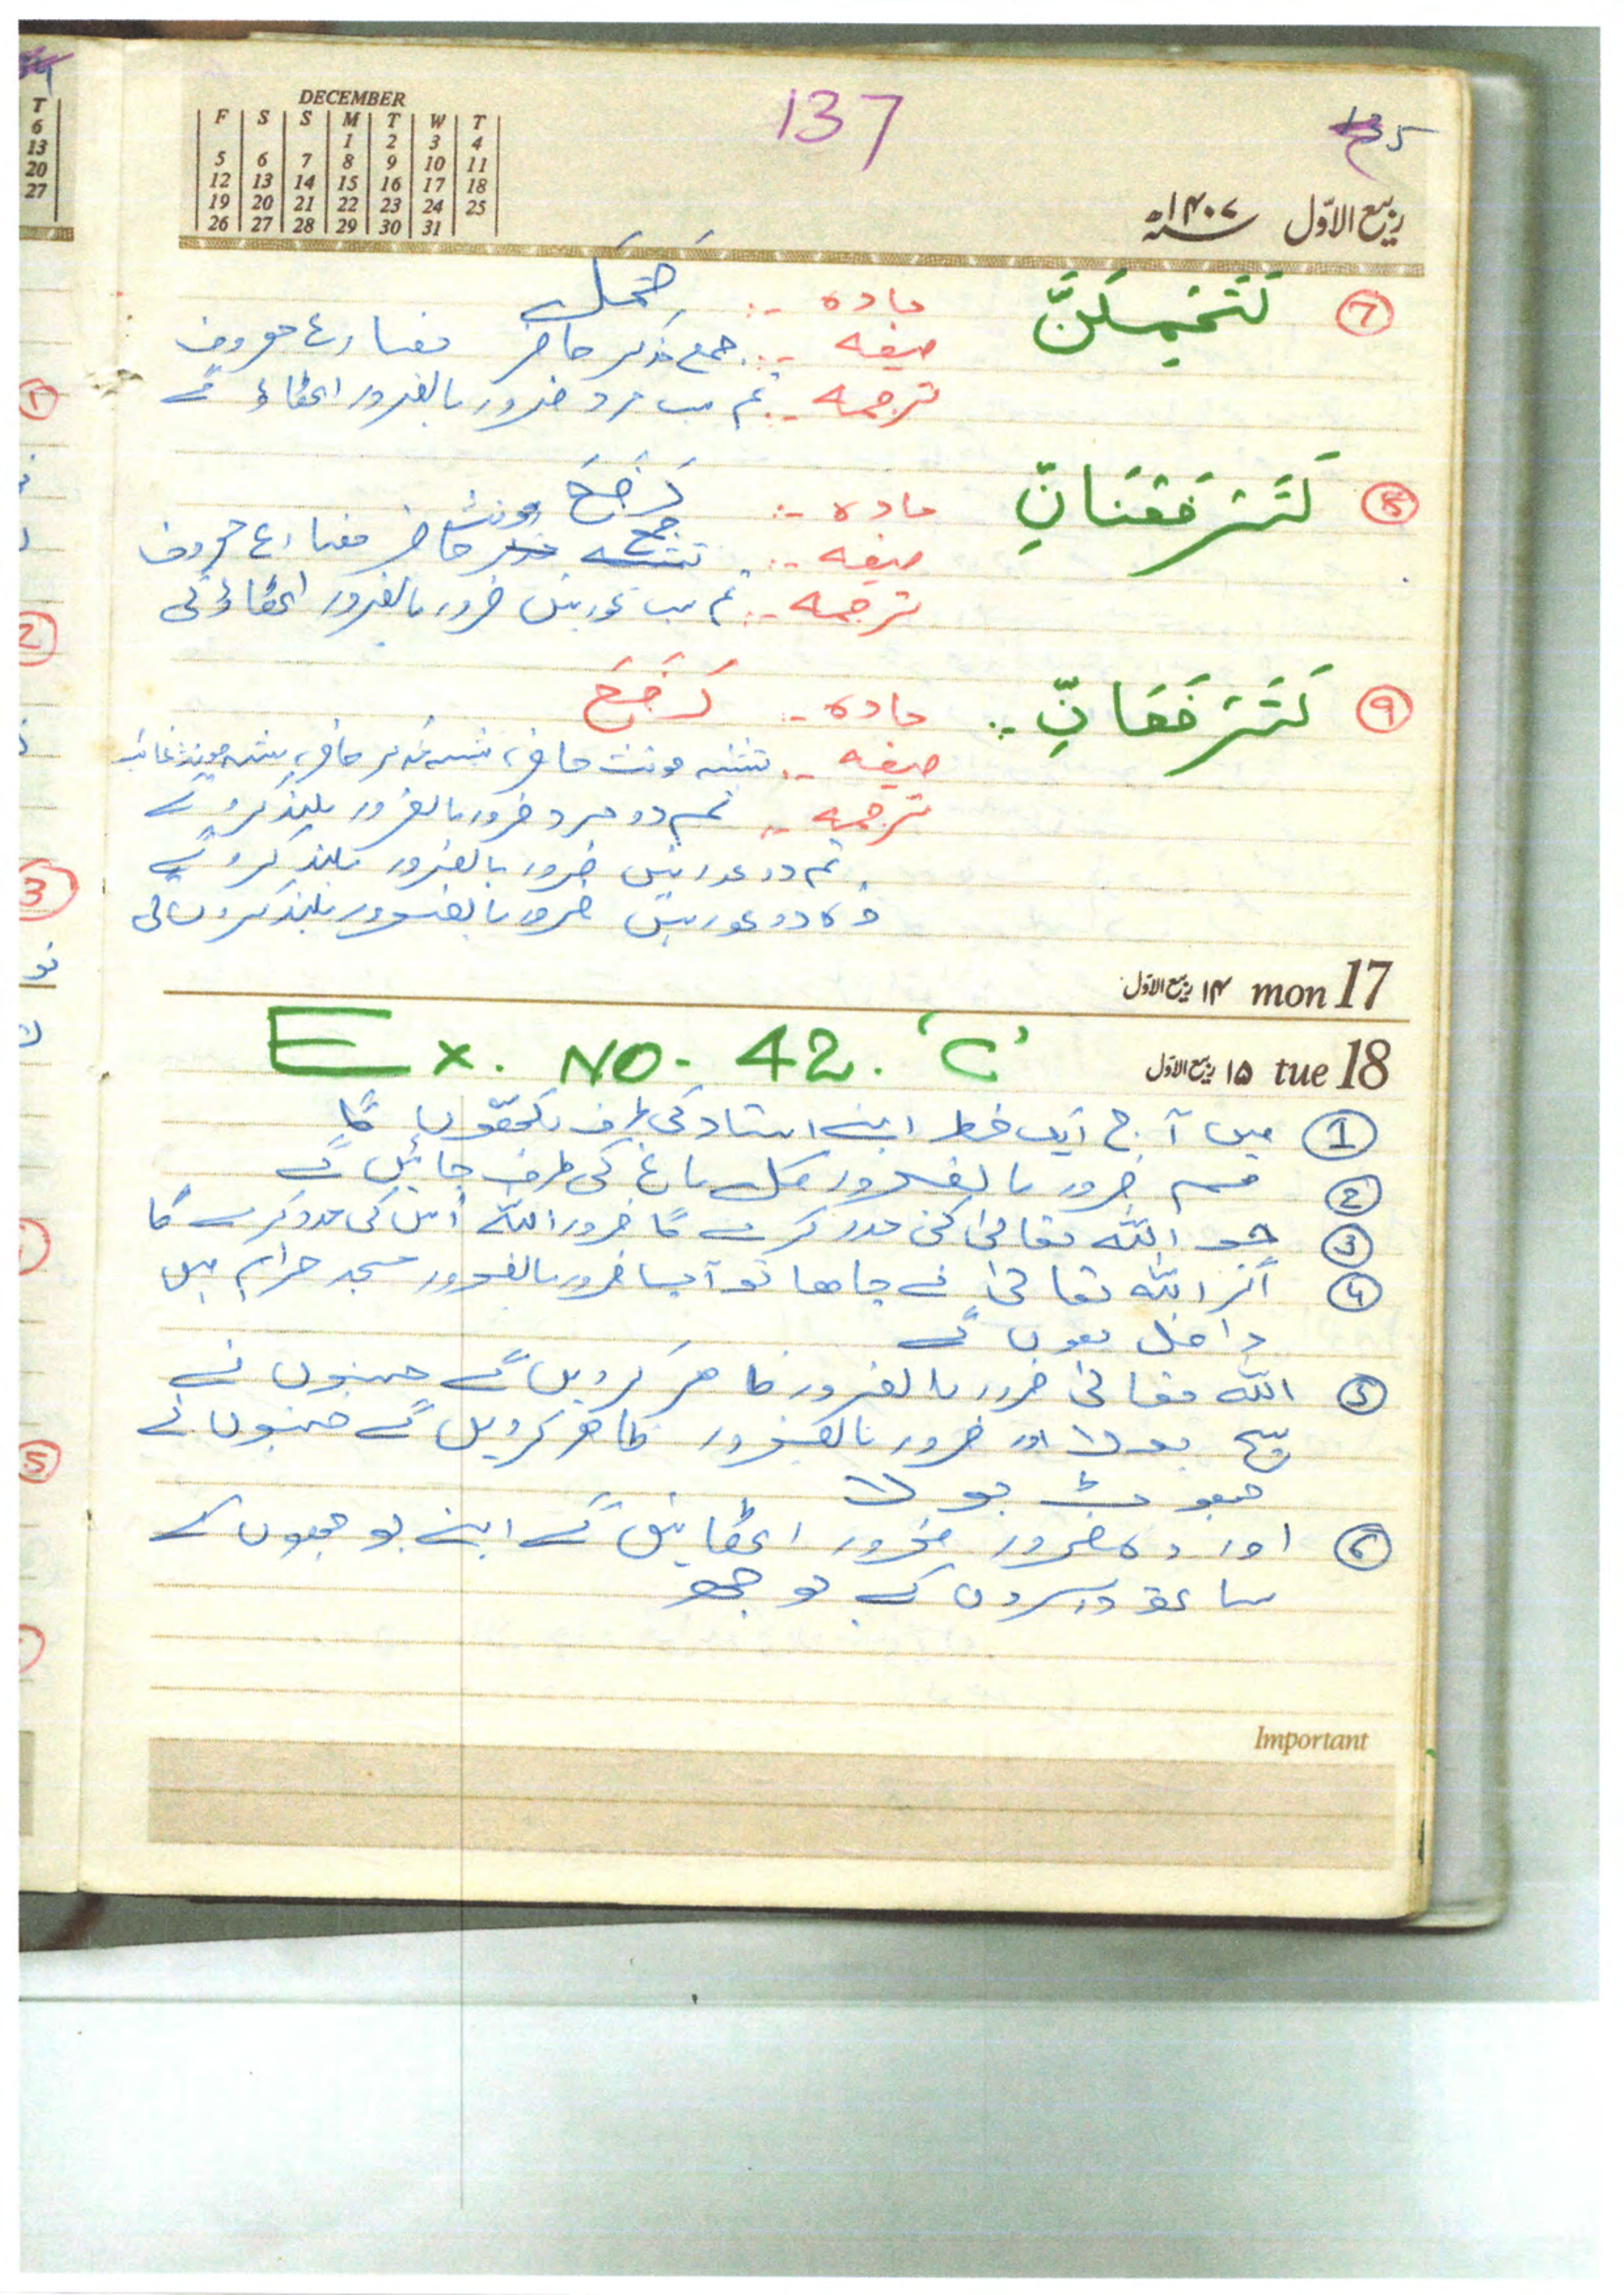 DECEMBER
F S S M T W T
1 2 3 4
5 6 7 8 9 10 11
12 13 14 15 16 17 18
19 20 21 22 23 24 25
26 27 28 29 30 31
137
135
ربیع الاوّل ۱۴۰۷ھ
T
6
13
20
27
⑦ لَتَحْمِلُنَّ مادہ :- حَمَلَ
صیغہ :- جمع مذکر حاضر مضارع معروف
ترجمہ :- تم سب مرد ضرور بالضرور اٹھاؤ گے
⑧ لَتَرْفَعْنَانِّ مادہ :- رَفَعَ
صیغہ :- جمع مونث حاضر مضارع معروف
ترجمہ :- تم سب عورتیں ضرور بالضرور اٹھاؤگی
⑨ لَتَرْفَعَانِّ :- مادہ :- رَفَعَ
صیغہ :- تثنیہ مونث حاضر، تثنیہ مذکر حاضر، تثنیہ مونث غائب
ترجمہ :- تم دو مرد ضرور بالضرور بلند کروگے
تم دو عورتیں ضرور بالضرور بلند کروگے
وہ دو عورتیں ضرور بالضرور بلند کریں گی
۱۴ ربیع الاوّل mon 17
Ex. NO. 42. 'C'
۱۵ ربیع الاوّل tue 18
① میں آج ایک خط اپنے استاد کی طرف لکھوں گا
② ہم ضرور بالضرور کل باغ کی طرف جائیں گے
③ جو اللہ تعالیٰ کی مدد کرے گا ضرور اللہ اُس کی مدد کرے گا
④ اگر اللہ تعالیٰ نے چاہا تو آپ ضرور بالضرور مسجد حرام میں
داخل ہوں گے
⑤ اللہ تعالیٰ ضرور بالضرور ظاہر کردیں گے جنہوں نے
سچ بولا اور ضرور بالضرور ظاہر کردیں گے جنہوں نے
جھوٹ بولا
⑥ اور وہ ضرور ضرور اٹھائیں گے اپنے بوجھوں کے
ساتھ دوسروں کے بوجھ
Important